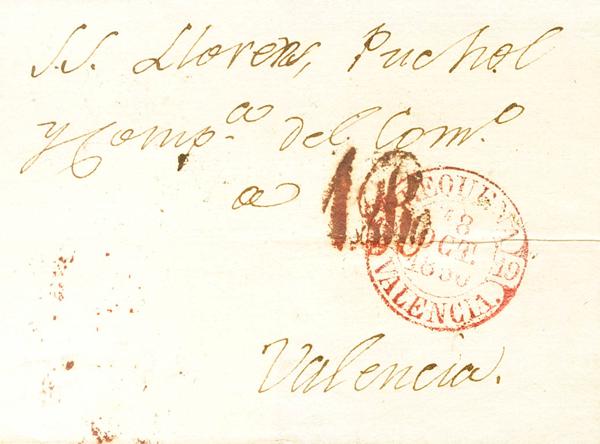 S.S. Llorens, Puchol
y Comp.ª del Com.º
a
18 OCT. 1850
VALENCIA.
Valencia.